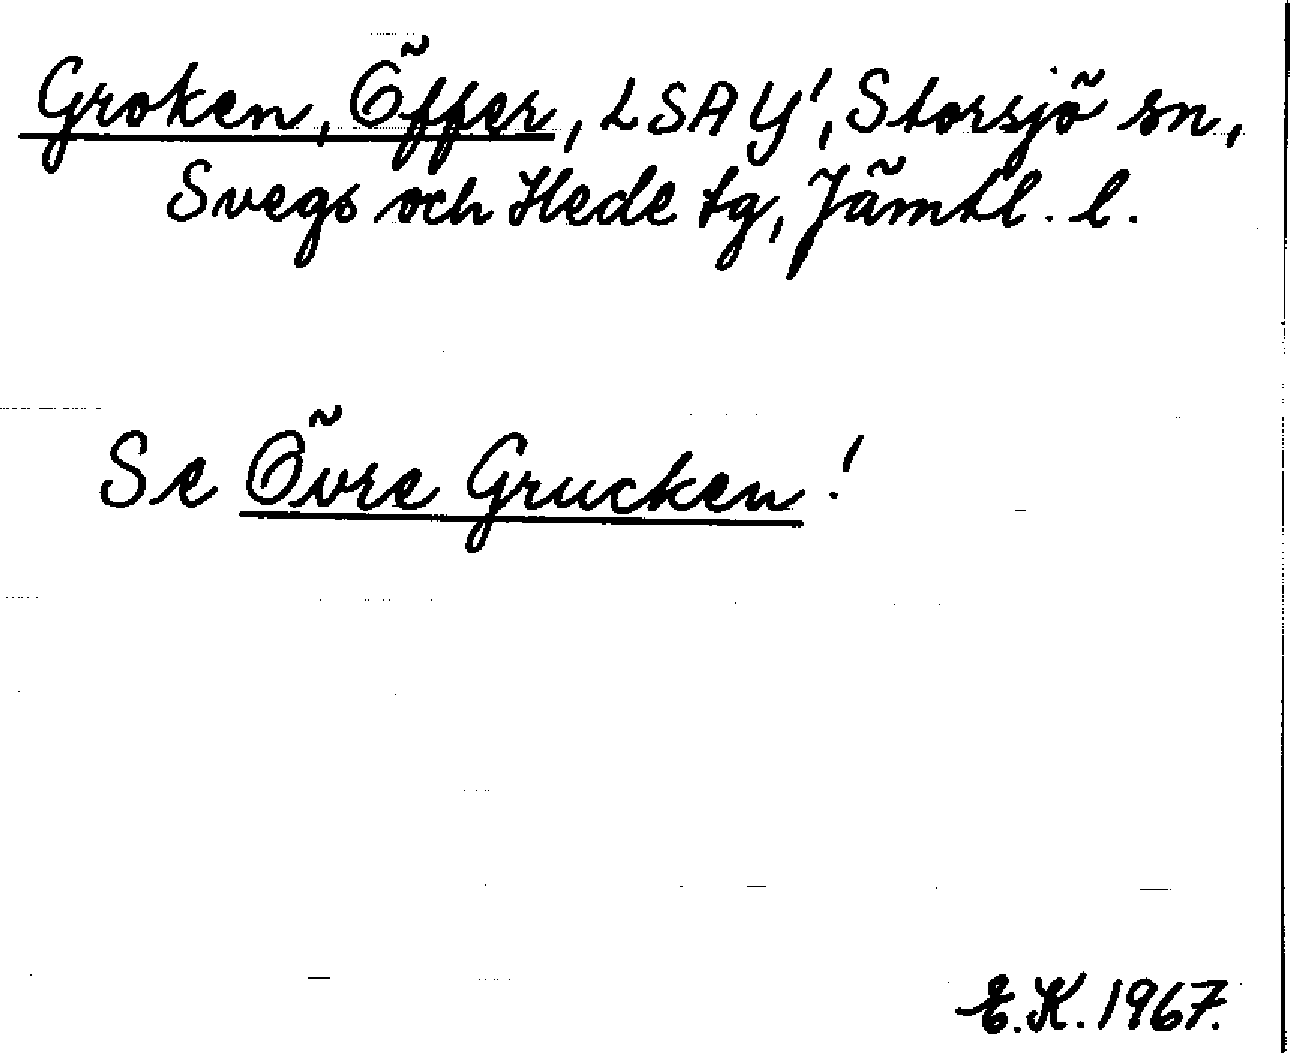 Groken, Öffer, LSA Y!, Storsjö sn,
Svegs och Hede tg, Jämtl. l.
Se Övre Grucken!
E.K. 1967.